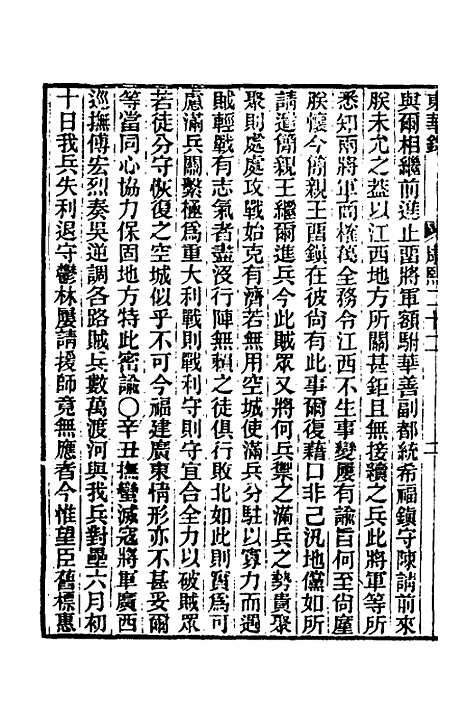 東華錄 康熙二十二 二
與爾相繼前進止畱將軍額駙華善副都統希福鎮守陳請前來
朕未允之葢以江西地方所關甚鉅且無接續之兵此將軍等所
悉知兩將軍商榷萬全務令江西不生事變屢有諭旨何至尙廑
朕懷今簡親王畱鎮在彼尙有此事爾復藉口非己汛地儻如所
請遣簡親王繼爾進兵今此賊眾又將何兵禦之滿兵之勢貴聚
聚則處處攻戰始克有濟若無用空城使滿兵分駐以寡力而遇
賊輕戰有志氣者盡沒行陣無賴之徒俱行敗北如此則實爲可
慮滿兵關繫極爲重大利戰則戰利守則守宜合全力以破賊眾
若徒分守恢復之空城似乎不可今福建廣東情形亦不甚妥爾
等當同心協力保固地方特此密諭○辛丑撫蠻滅寇將軍廣西
巡撫傅宏烈奏吳逆調各路賊兵數萬渡河與我兵對壘六月初
十日我兵失利退守鬱林屢請援師竟無應者今惟望臣舊標惠